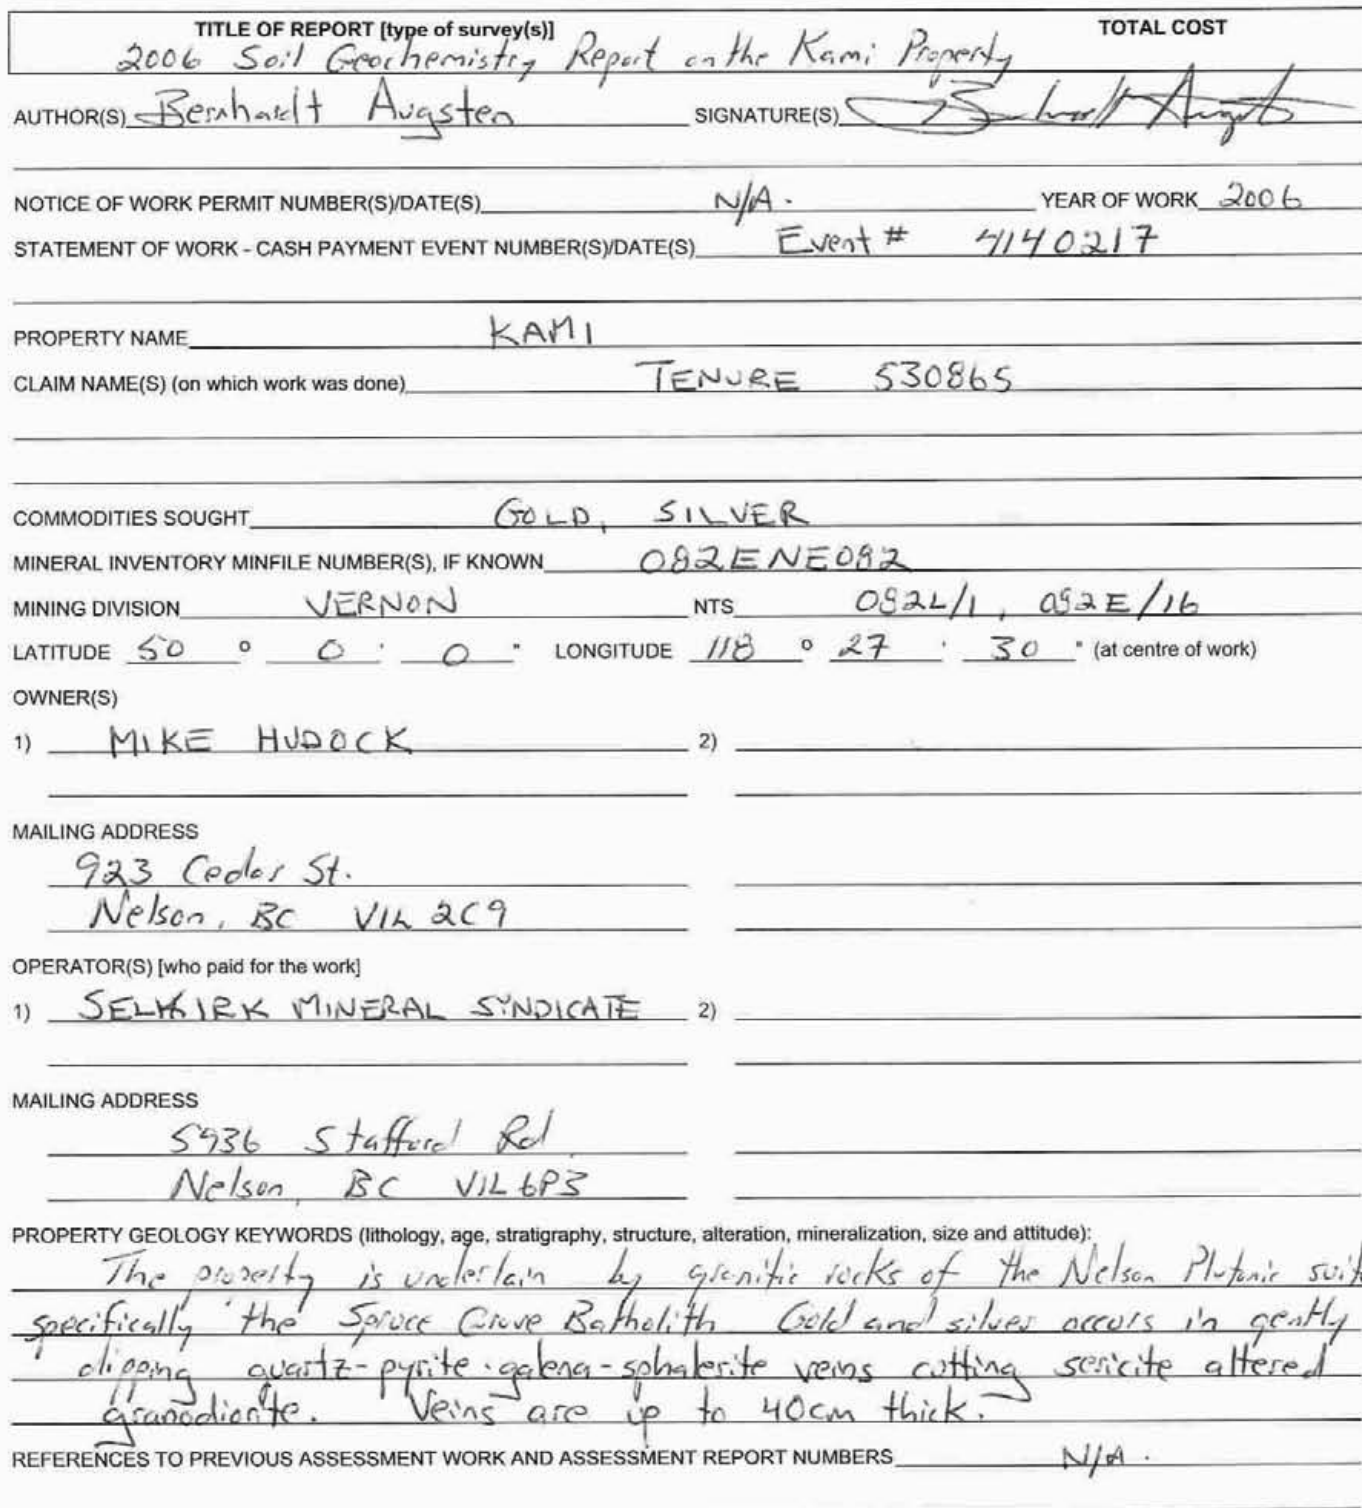 TITLE OF REPORT [type of survey(s)] TOTAL COST
2006 Soil Geochemistry Report on the Kami Property
AUTHOR(S) Bernhardt Augsten SIGNATURE(S)
NOTICE OF WORK PERMIT NUMBER(S)/DATE(S) N/A. YEAR OF WORK 2006
STATEMENT OF WORK - CASH PAYMENT EVENT NUMBER(S)/DATE(S) Event # 4140217
PROPERTY NAME KAMI
CLAIM NAME(S) (on which work was done) TENURE 530865
COMMODITIES SOUGHT GOLD, SILVER
MINERAL INVENTORY MINFILE NUMBER(S), IF KNOWN 082ENE082
MINING DIVISION VERNON NTS 082L/1, 082E/16
LATITUDE 50 ° 0 ' 0 " LONGITUDE 118 ° 27 ' 30 " (at centre of work)
OWNER(S)
1) MIKE HUDOCK 2)
MAILING ADDRESS
923 Cedar St.
Nelson, BC V1L 2C9
OPERATOR(S) [who paid for the work]
1) SELKIRK MINERAL SYNDICATE 2)
MAILING ADDRESS
5936 Stafford Rd
Nelson, BC V1L 6P3
PROPERTY GEOLOGY KEYWORDS (lithology, age, stratigraphy, structure, alteration, mineralization, size and attitude):
The property is underlain by granitic rocks of the Nelson Plutonic suit
specifically the Spruce Grove Batholith Gold and silver occurs in gently
dipping quartz-pyrite-galena-sphalerite veins cutting sericite altered
granodiorite. Veins are up to 40cm thick.
REFERENCES TO PREVIOUS ASSESSMENT WORK AND ASSESSMENT REPORT NUMBERS N/A.